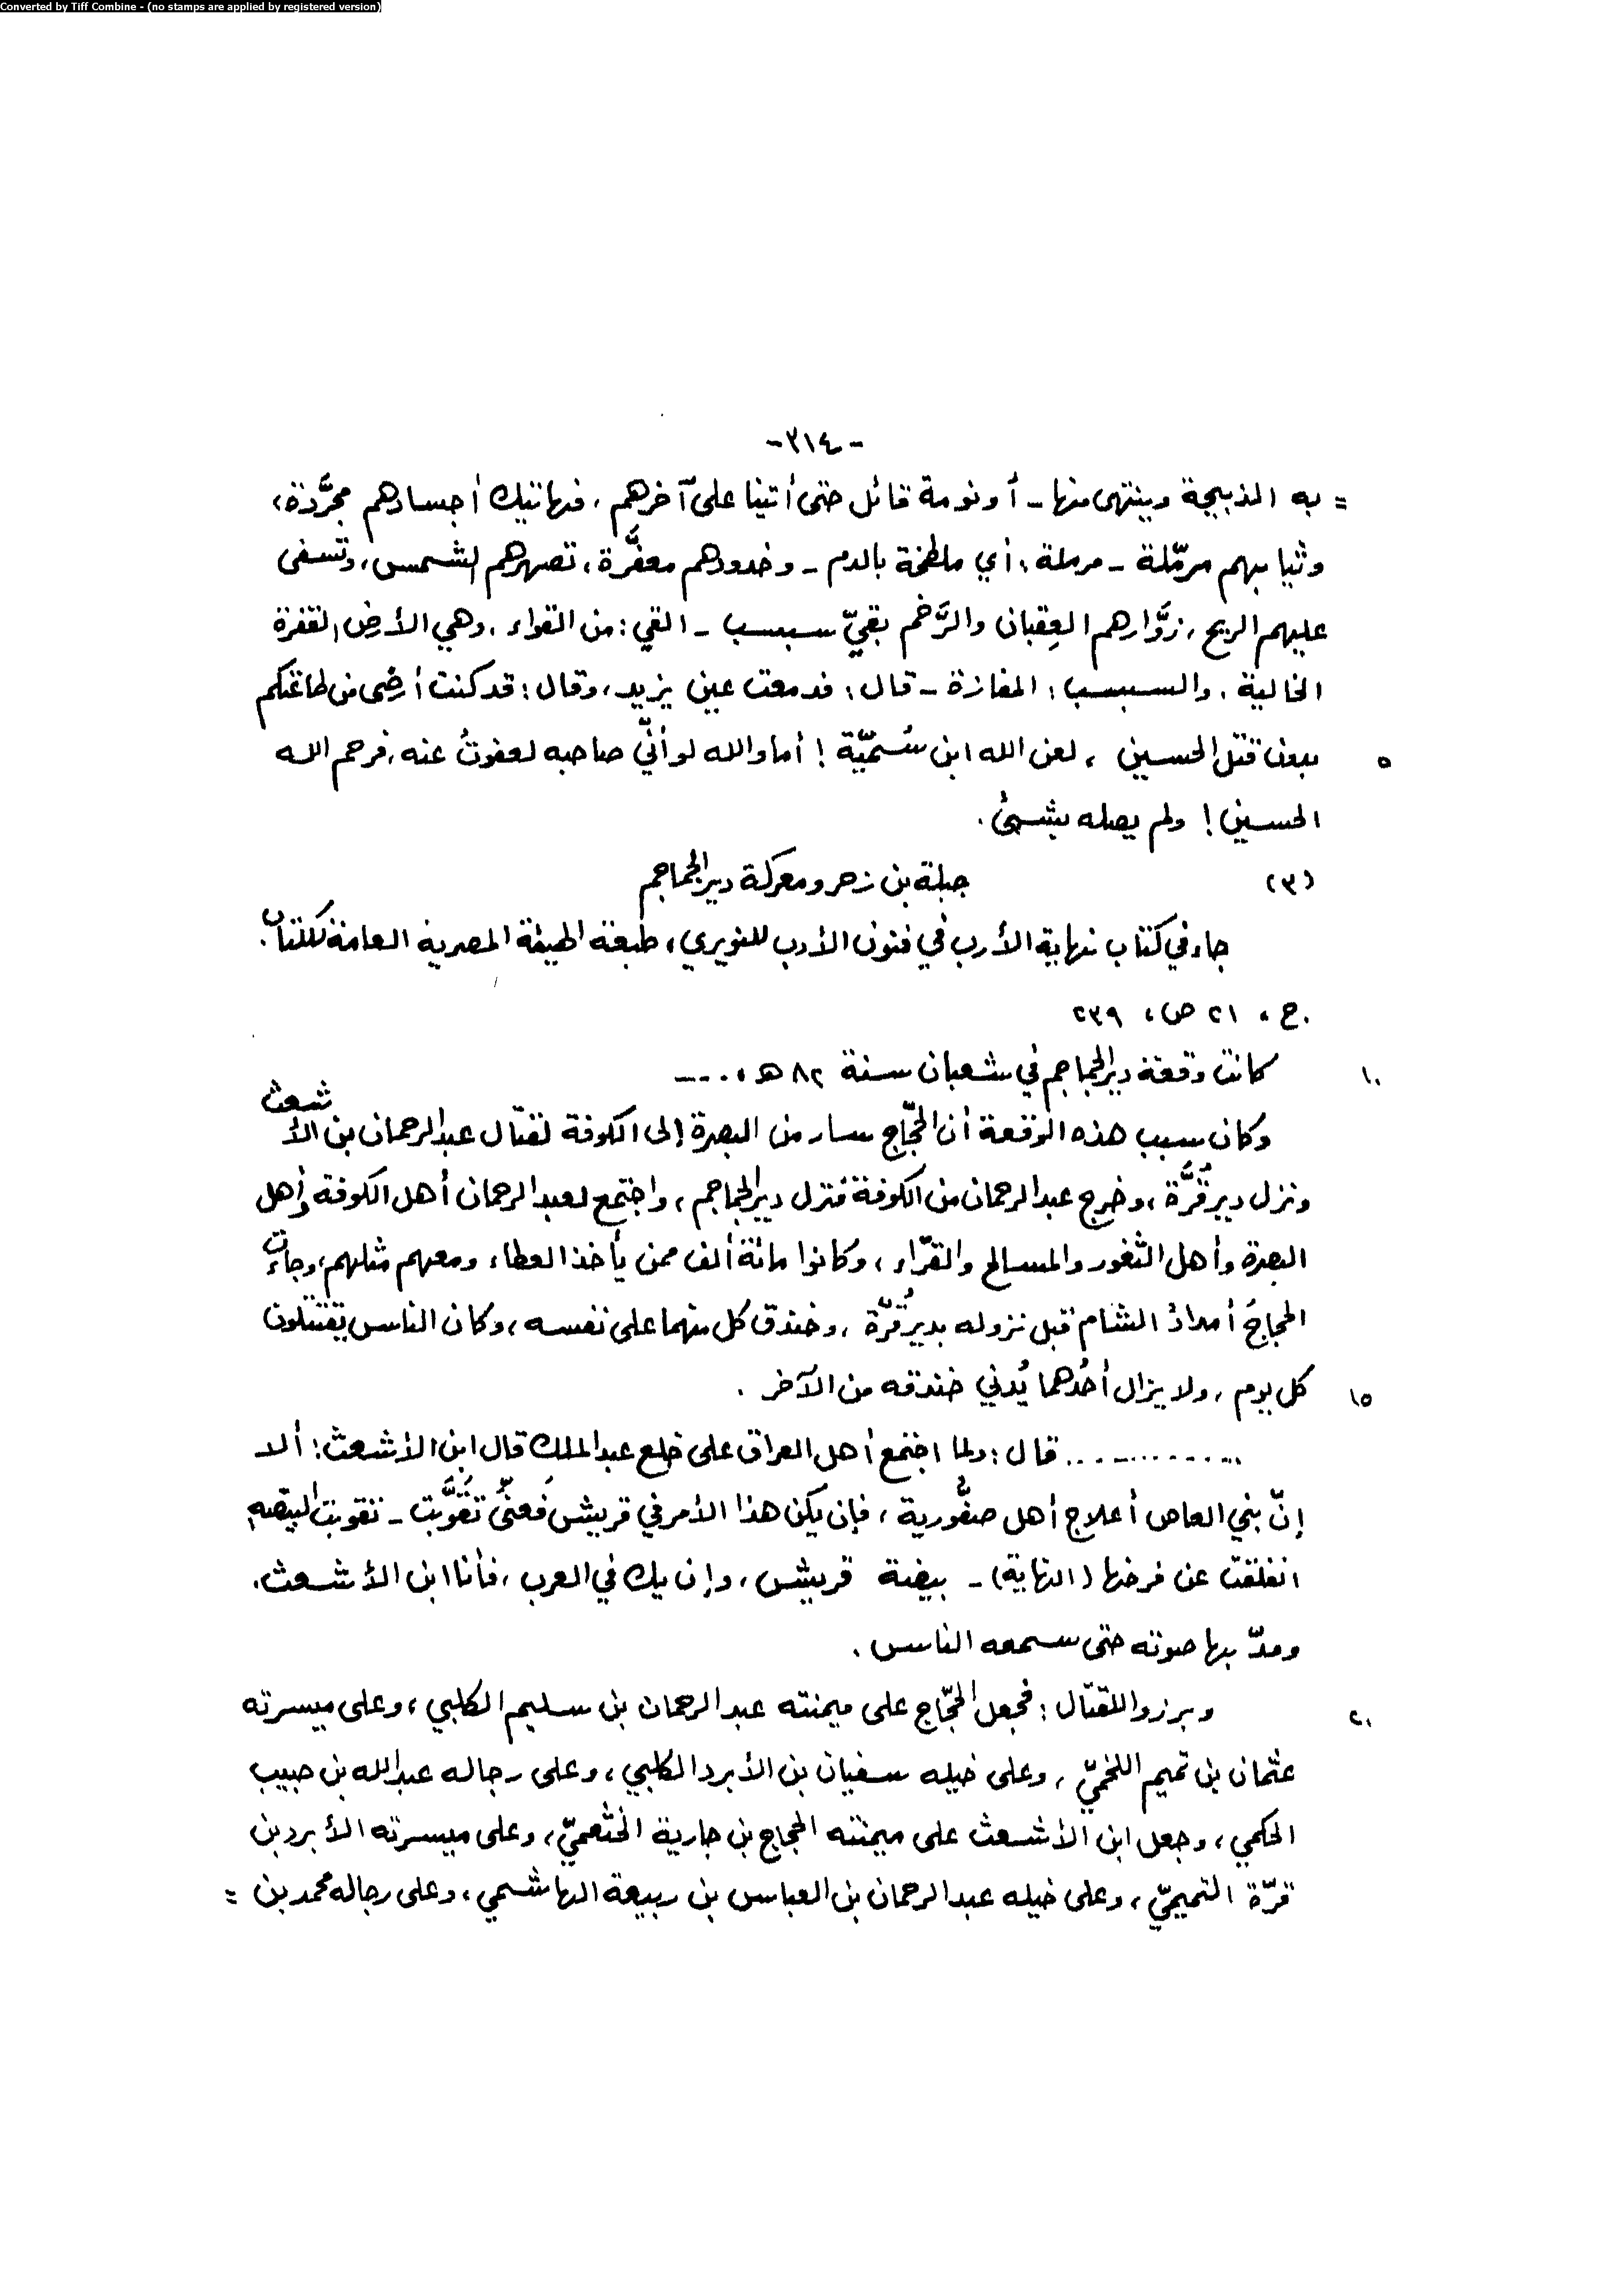 Converted by Tiff Combine - (no stamps are applied by registered version)
-٣١٤-
= به المذبيحة وينتهى منها - أو نومة قائل حتى أتينا على آخرهم ، فهاتيك أجسادهم مجرَّدة ،
وثيابهم مرمّلة - مرملة : أي ملطخة بالدم - وخدودهم معفَّرة ، تصهرهم الشمس ، وتسفى
عليهم الريح ، زوَّارهم العِقبان والرَّخم بقيّ سبسب - القي : من القواء ، وهي الأرض القفرة
الخالية . والسبسب : المفازة - قال : فدمعت عين يزيد ، وقال : قد كنت أرضى من طاعتكم
٥ بدون قتل الحسين ، لعن الله ابن سُميّة ! أما والله لو أنّي صاحبه لعفوتُ عنه ، فرحم الله
الحسين ! ولم يصله بشيئ .
(٣) جبلة بن زحر ومعركة دير الجماجم
جاء في كتاب نهاية الأرب في فنون الأدب للنويري ، طبعة الهيئة المصرية العامة للكتاب .
. ج ، ٢١ ص ، ٢٣٩
١٠ كانت وقعة دير الجماجم في شعبان سنة ٨٢ هـ ، .....
وكان سبب هذه الوقعة أن الحجّاج سار من البصرة إلى الكوفة لقتال عبد الرحمان بن الأشعث
ونزل دير قُرَّة ، وخرج عبد الرحمان من الكوفة فنزل دير الجماجم ، واجتمع لعبد الرحمان أهل الكوفة وأهل
البصرة وأهل الثغور والمسالح والقرّاء ، وكانوا مائة ألف ممن يأخذ العطاء ومعهم مثلهم ، وجاءت
الحجاجَ أمدادُ الشام قبل نزوله بدير قُرّة ، وخندق كل منهما على نفسه ، وكان الناس يقتتلون
١٥ كل يوم ، ولا يزال أحدُهما يُدني خندقه من الآخر .
............. قال : ولما اجتمع أهل العراق على خلع عبد الملك قال ابن الأشعث : ألا
إنّ بني العاص أعلاج أهل صفُّورية ، فإن يكن هذا الأمر في قريش فَعنّي تَقَوَّبت - تقوبت البيضة
انفلقت عن فرخها (النهاية) - بيضة قريش ، وإن يك في العرب ، فأنا ابن الأشعث .
ومدّ بها صوته حتى سمعه الناس .
٢٠ وبرزوا للقتال : فجعل الحجّاج على ميمنته عبد الرحمان بن سليم الكلبي ، وعلى ميسرته
عثمان بن تميم اللخميّ ، وعلى خيله سفيان بن الأبرد الكلبي ، وعلى رجاله عبد الله بن حبيب
الحكمي ، وجعل ابن الأشعث على ميمنته الحجاج بن جارية الخثعميّ ، وعلى ميسرته الأبرد بن
قرّة التميميّ ، وعلى خيله عبد الرحمان بن العباس بن ربيعة الهاشمي ، وعلى رجاله محمد بن =